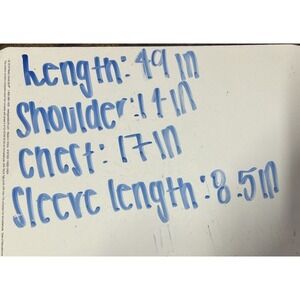 Length: 49 in
Shoulder: 14 in
Chest: 17 in
Sleeve length: 8.5 in